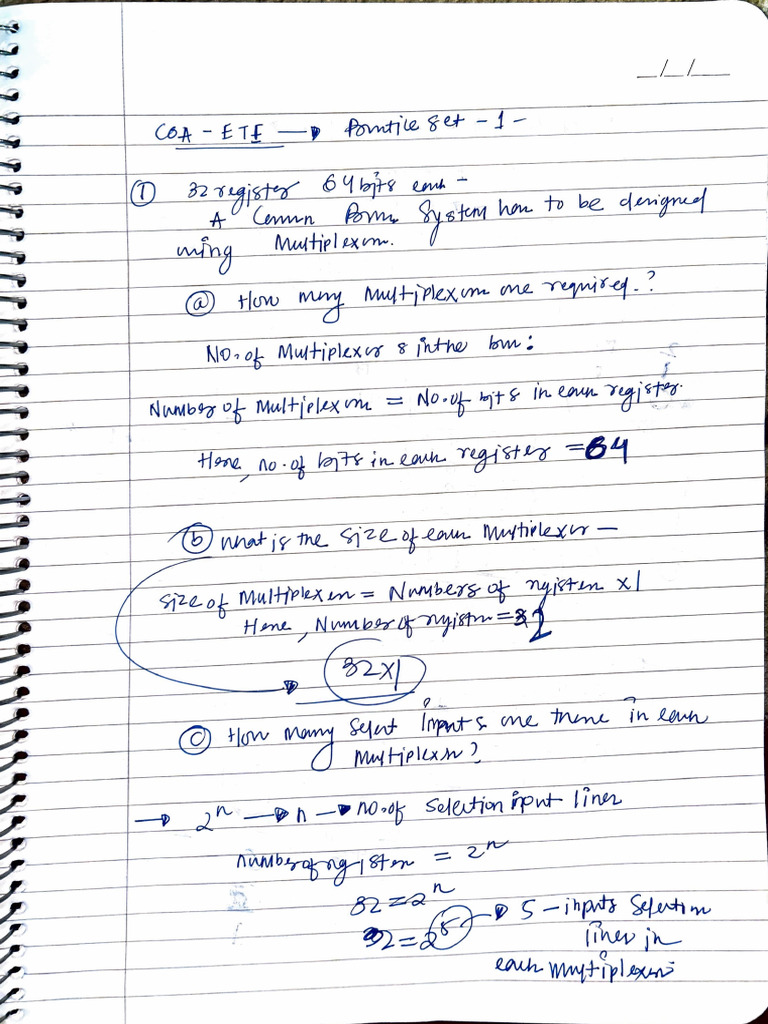 _/_/__
COA - ETE → Practice Set - 1 -
① 32 register 64 bits each -
A Common Bus System has to be designed
using Multiplexers.
ⓐ How many Multiplexers are required.?
No. of Multiplexers in the bus :
Number of Multiplexers = No. of bits in each register.
Here, no. of bits in each register = 64
ⓑ What is the size of each Multiplexer —
Size of Multiplexer = Numbers of registers x1
Here, Number of registers = 32
32x1
ⓒ How many select inputs are there in each
Multiplexer?
→ 2ⁿ → n → no. of selection input lines
number of registers = 2ⁿ
32 = 2ⁿ
32 = 2⁵ → 5 - inputs Selection
lines in
each multiplexers